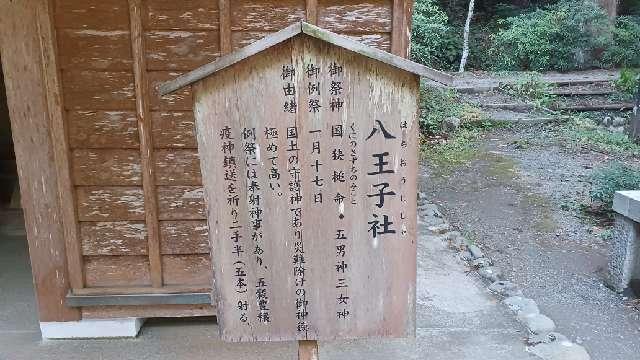 八王子社
はちおうじしゃ
御祭神 国狭槌命・五男神三女神
くにのさづちのみこと
御例祭 一月十七日
御由緒 国土の守護神であり災難除けの御神徳
極めて高い。
例祭には奉射神事があり、五穀豊穣
疫神鎮送を祈り二手半(五本)射る。